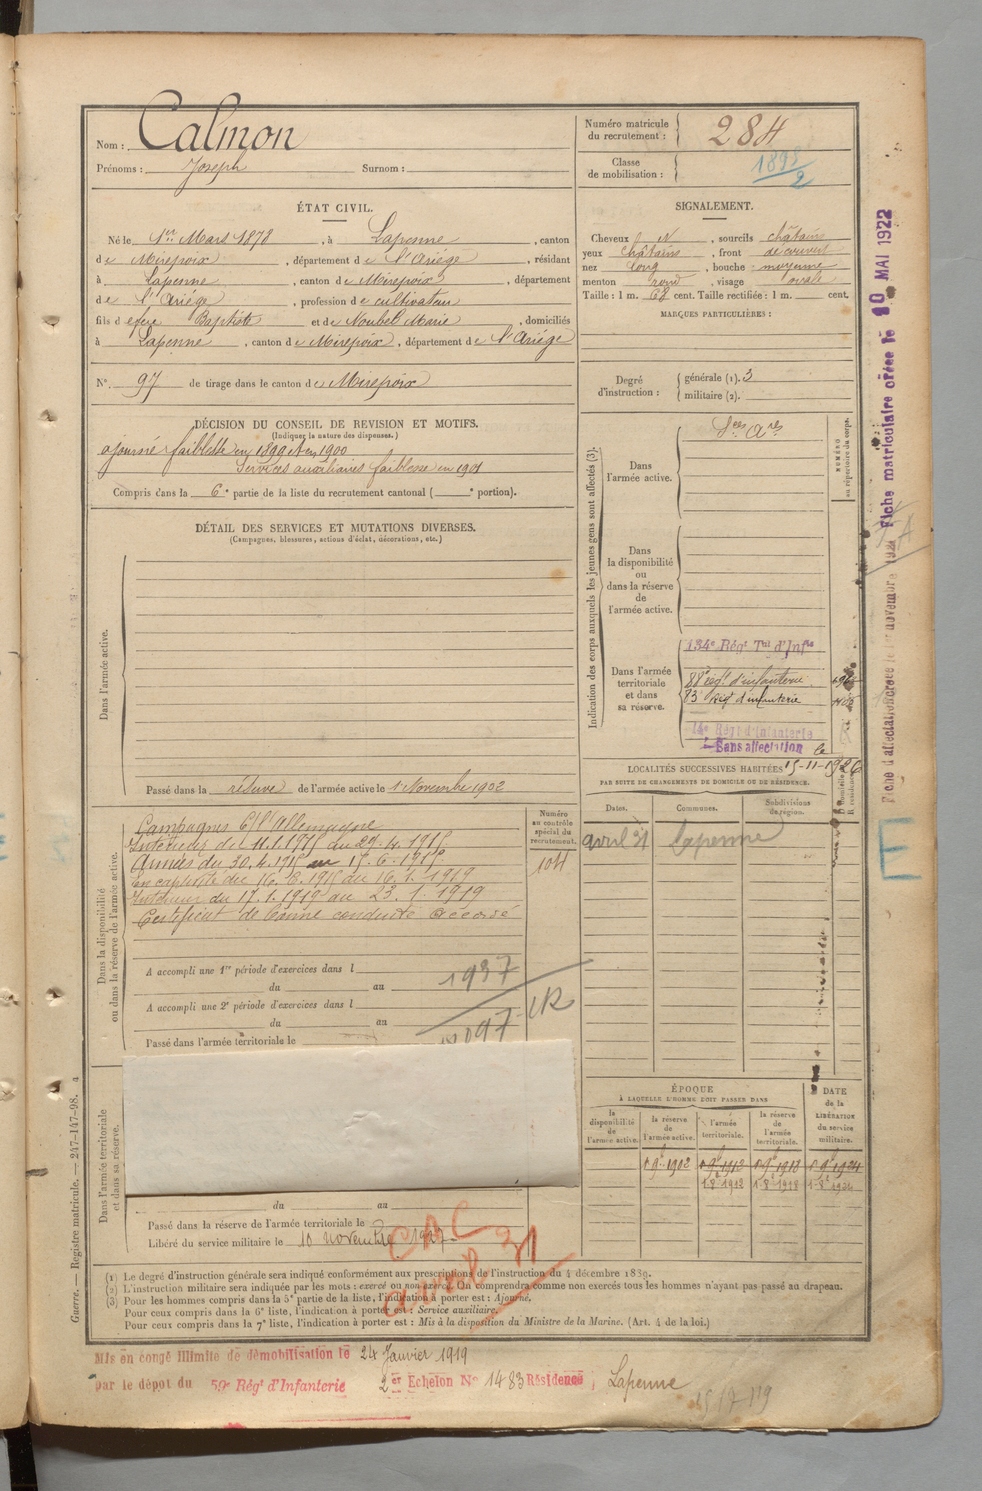 Nom : Calmon
Prénoms : Joseph Surnom :
ÉTAT CIVIL.
Né le 1er Mars 1878, à Lapenne, canton
de Mirepoix, département de l'Ariège, résidant
à Lapenne, canton de Mirepoix, département
de l'Ariège, profession de cultivateur
fils de feu Baptiste et de Noubel Marie, domiciliés
à Lapenne, canton de Mirepoix, département de l'Ariège
N° 97 de tirage dans le canton de Mirepoix
DÉCISION DU CONSEIL DE REVISION ET MOTIFS.
(Indiquer la nature des dispenses.)
ajourné faiblesse en 1899 et en 1900
Services auxiliaires faiblesse en 1901
Compris dans la 6e partie de la liste du recrutement cantonal ( e portion).
DÉTAIL DES SERVICES ET MUTATIONS DIVERSES.
(Campagnes, blessures, actions d'éclat, décorations, etc.)
Dans l'armée active.
Passé dans la réserve de l'armée active le 1 Novembre 1902
Dans la disponibilité
ou dans la réserve de l'armée active.
Campagnes C/ l'Allemagne
Intérieur du 11.1.1915 au 29.4.1915
Armées du 30.4.1915 au 15.6.1915
En captivité du 16.6.1915 au 16.1.1919
Intérieur du 17.1.1919 au 23.1.1919
Certificat de bonne conduite accordé
Numéro
au contrôle
spécial du
recrutement.
104
A accompli une 1re période d'exercices dans l
du au
A accompli une 2e période d'exercices dans l
du au
Passé dans l'armée territoriale le
1937
Dans l'armée territoriale
et dans sa réserve.
du au
Passé dans la réserve de l'armée territoriale le
Libéré du service militaire le 10 novembre 1927
CAC
avril 31
Numéro matricule
du recrutement : 284
Classe
de mobilisation : 1898/2
SIGNALEMENT.
Cheveux N, sourcils châtains
yeux châtains, front découvert
nez long, bouche moyenne
menton rond, visage ovale
Taille : 1 m. 68 cent. Taille rectifiée : 1 m. cent.
MARQUES PARTICULIÈRES :
Degré
d'instruction :
générale (1). 3
militaire (2).
Indication des corps auxquels les jeunes gens sont affectés (3).
NUMÉRO
au répertoire du corps.
Dans
l'armée active.
Sces Ares
Dans
la disponibilité
ou
dans la réserve
de
l'armée active.
Dans l'armée
territoriale
et dans
sa réserve.
134e Régt Tal d'Infie
88e régt d'infanterie
83 Rég d'infanterie
14e Régt d'Infanterie
Sans affectation le
15-11-1926
LOCALITÉS SUCCESSIVES HABITÉES
PAR SUITE DE CHANGEMENTS DE DOMICILE OU DE RÉSIDENCE.
Dates. Communes. Subdivisions
de région.
avril 31 Lapenne
ÉPOQUE
À LAQUELLE L'HOMME DOIT PASSER DANS
la
disponibilité
de
l'armée active.
la réserve
de
l'armée active.
l'armée
territoriale.
la réserve
de
l'armée
territoriale.
DATE
de la
LIBÉRATION
du service
militaire.
1 9bre 1902 1 9bre 1912 1 9bre 1918 1 9bre 1924
1.8.1912 1-8-1918 1-8-1924
(1) Le degré d'instruction générale sera indiqué conformément aux prescriptions de l'instruction du 4 décembre 1889.
(2) L'instruction militaire sera indiquée par les mots : exercé ou non exercé. On comprendra comme non exercés tous les hommes n'ayant pas passé au drapeau.
(3) Pour les hommes compris dans la 5e partie de la liste, l'indication à porter est : Ajourné.
Pour ceux compris dans la 6e liste, l'indication à porter est : Service auxiliaire.
Pour ceux compris dans la 7e liste, l'indication à porter est : Mis à la disposition du Ministre de la Marine. (Art. 4 de la loi.)
Mis en congé illimité de démobilisation le 24 Janvier 1919
par le dépôt du 59e Régt d'Infanterie 2er Echelon N° 1483 Résidence, Lapenne
Guerre. — Registre matricule. — 247-147-98.
Fiche matriculaire créée le 10 MAI 1922
Fiche d'affectation créée le 1er novembre 1921
E